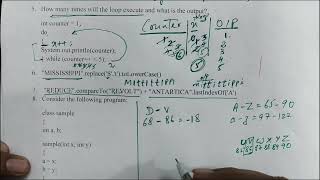 5. How many times will the loop execute and what is the output?
int counter = 1;
do
{ x++;
System.out.println(counter);
} while (counter <=5);
Counter O/P
1
2
3
4
5
6. "MISSISSIPPI".replace('S','t').toLowerCase()
mittittippi
7. "REDUCE".compareTo("REVOLT") + "ANTARTICA".lastIndexOf('A')
8. Consider the following program:
D - V
68 - 86 = -18
A-Z = 65-90
a-z = 97-122
class sample
{
int a, b;
sample(int x, int y)
{
a = x;
b = y;
U V W X Y Z
85 86 87 88 89 90